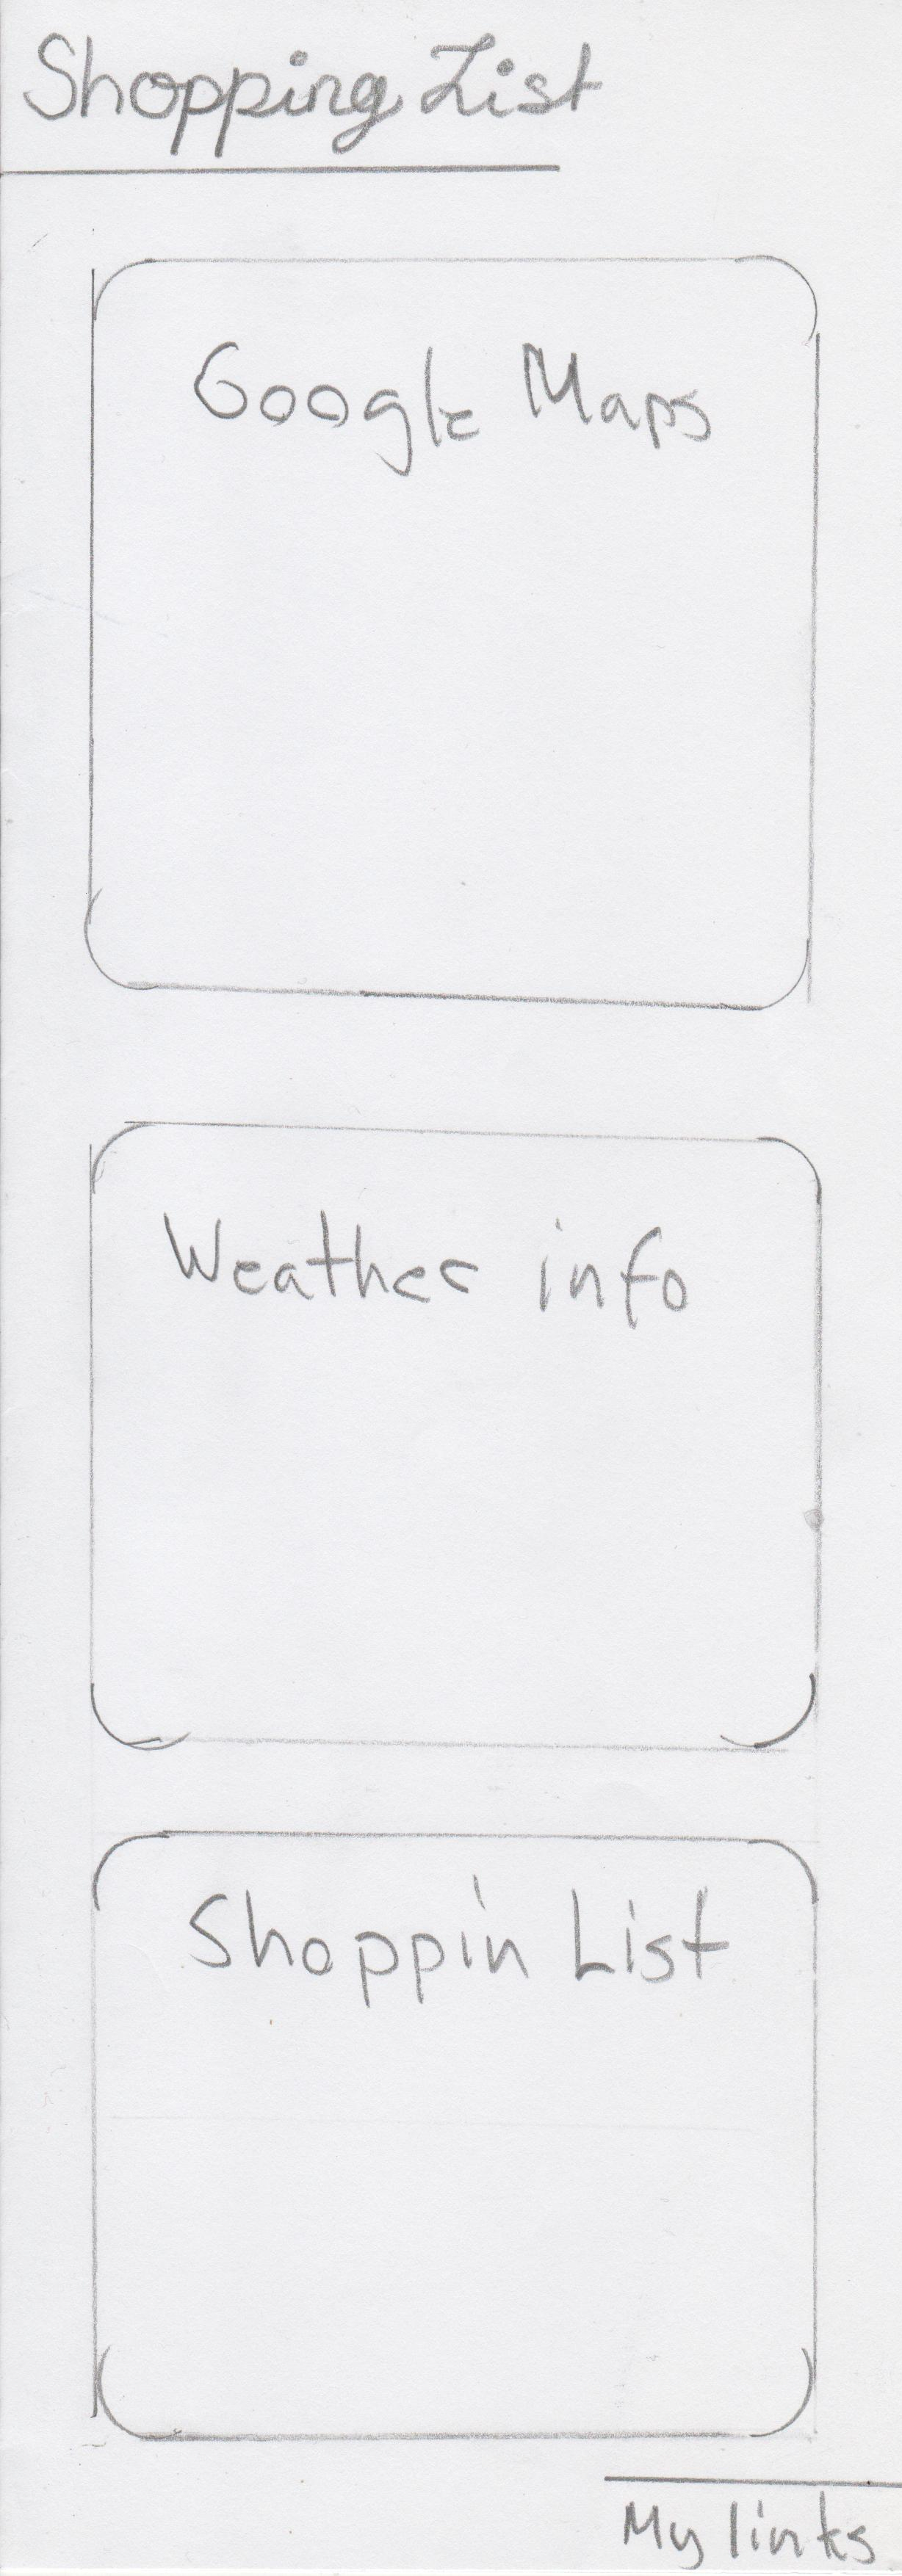 Shopping List
Google Maps
Weather info
Shoppin List
My links